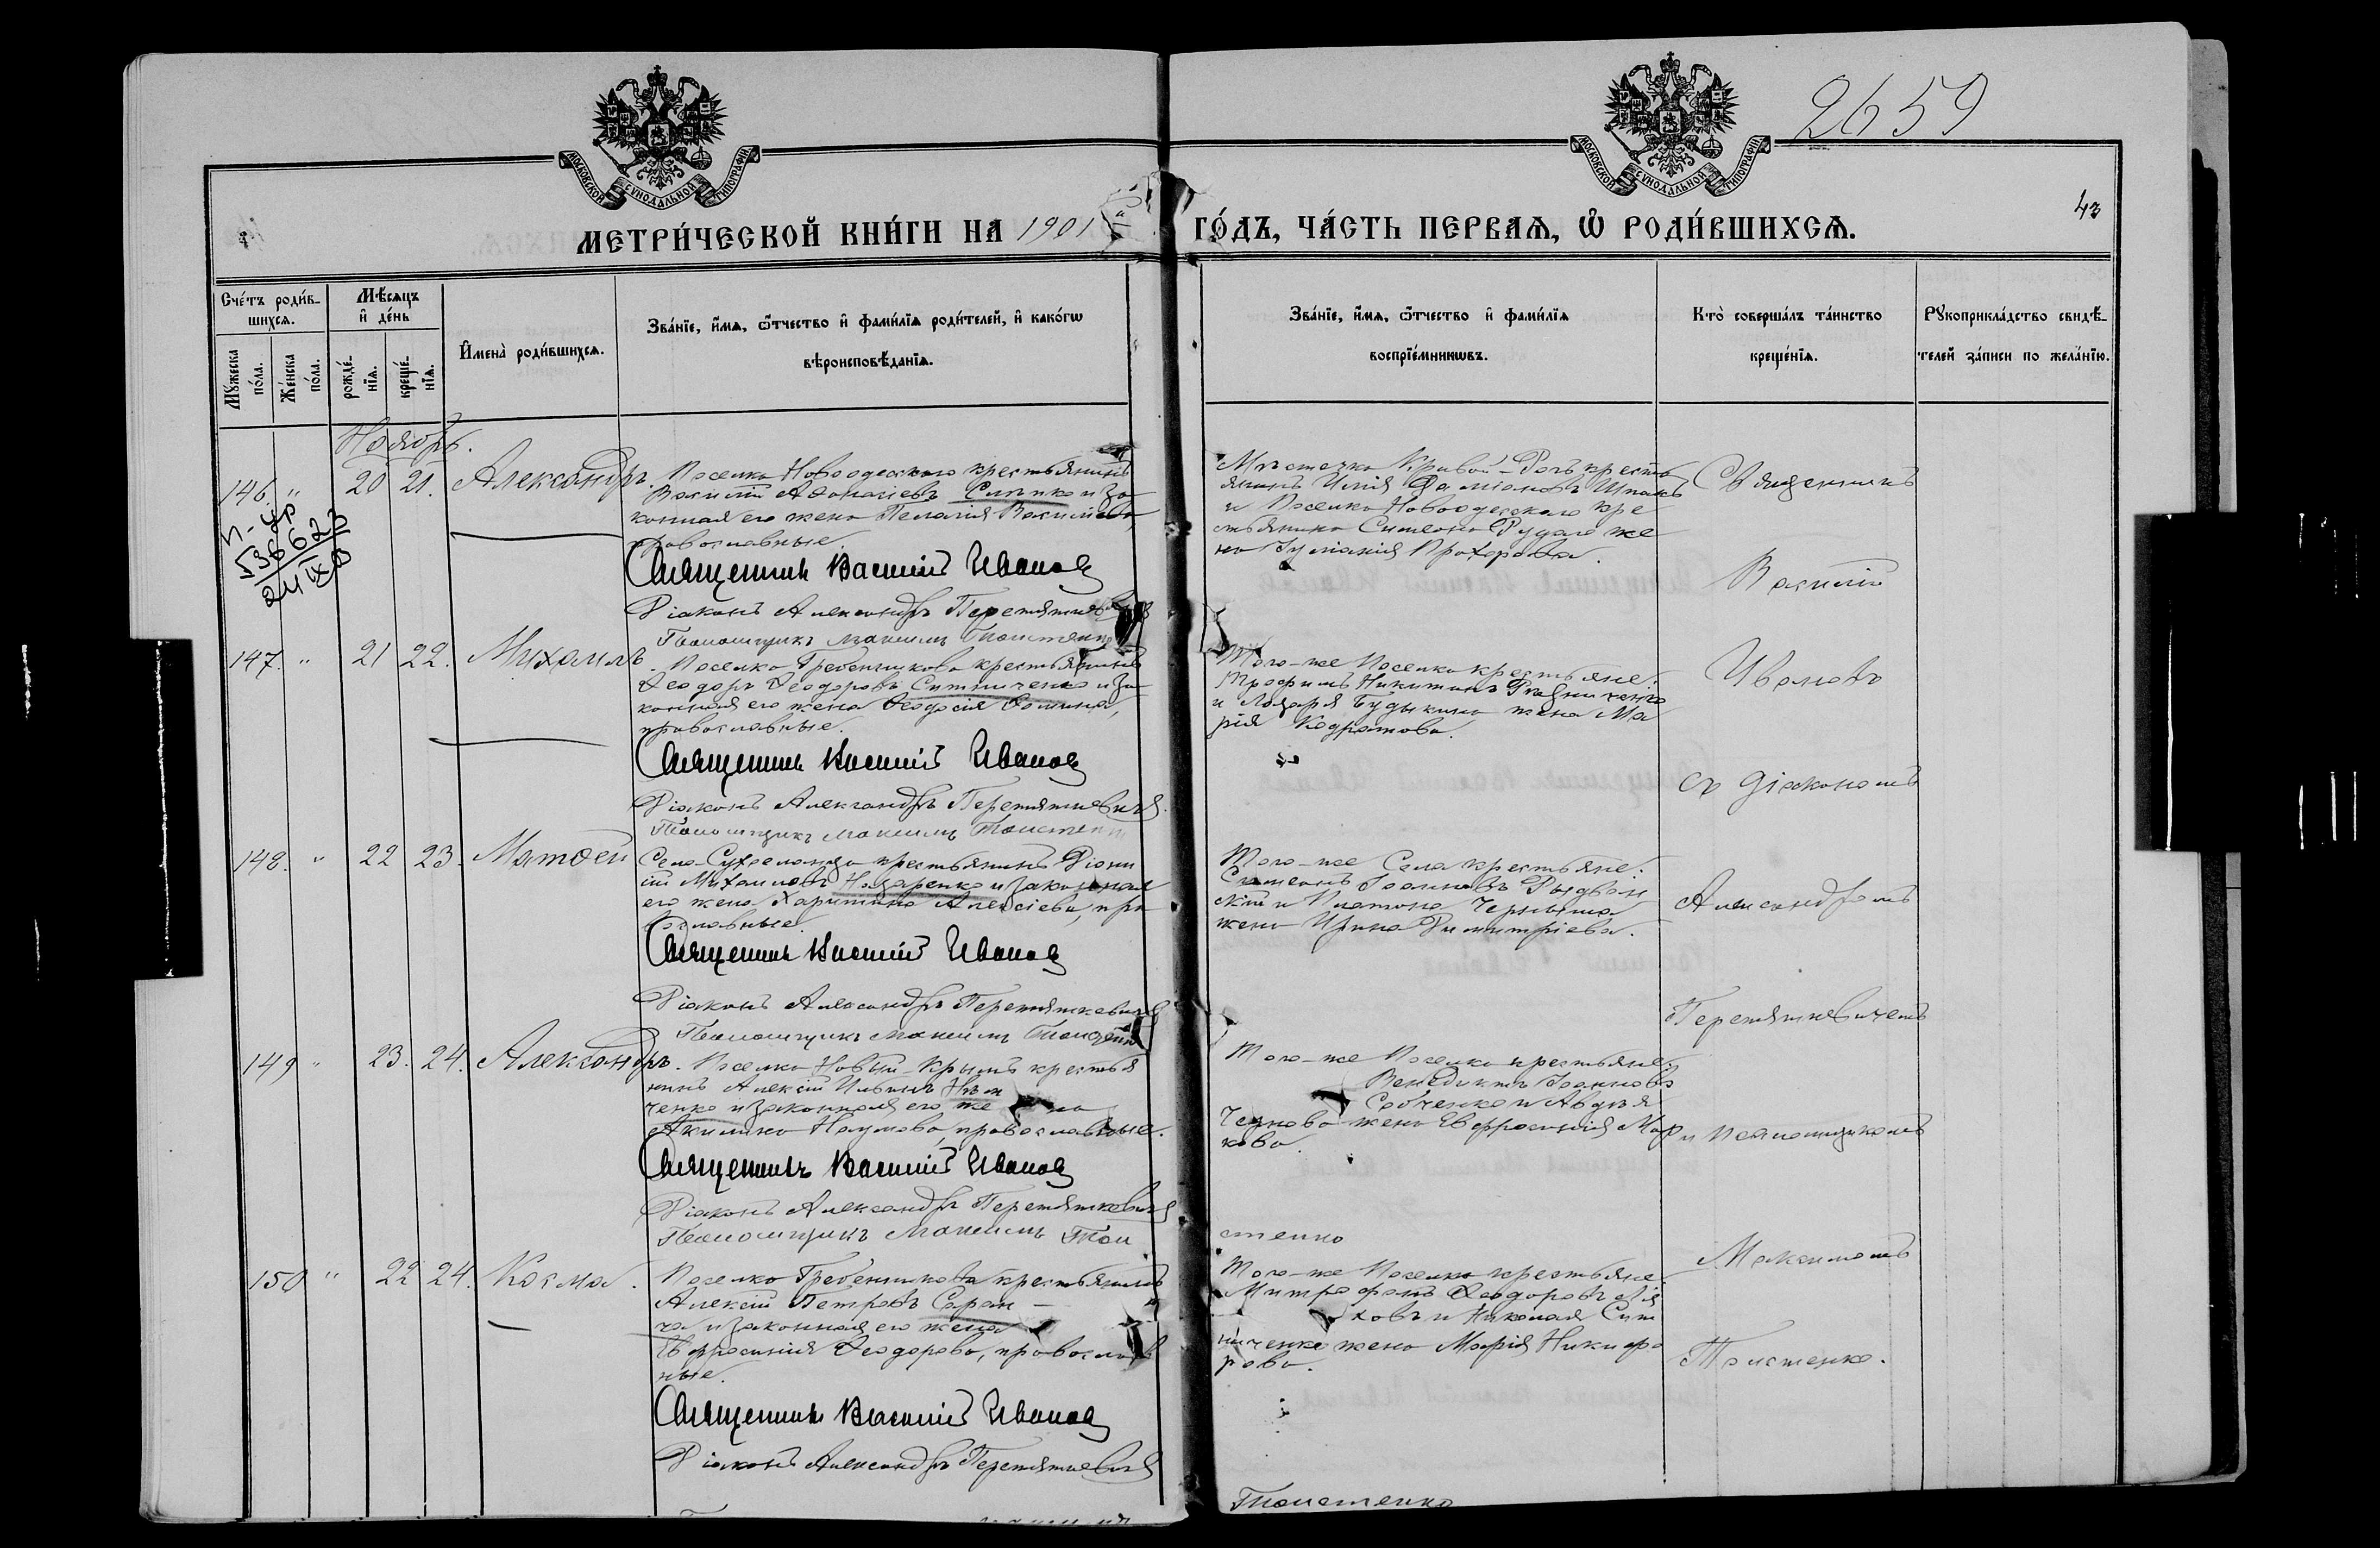 2659
43
МОСКОВСКОЙ СУНОДАЛЬНОЙ ТИПОГРАФІИ
МОСКОВСКОЙ СУНОДАЛЬНОЙ ТИПОГРАФІИ
МЕТРИ́ЧЕСКОЙ КНИ́ГИ НА 1901 ГО́ДЪ, ЧА́СТЬ ПЕРВАѦ, Ѿ РОДИ́ВШИХСѦ.
Сче́тъ роди́в-
шихсѧ.
Мꙋ́жеска по́ла.
Же́нска по́ла.
Мѣ́сѧцъ
и де́нь
рожде́-
нїѧ.
креще́-
нїѧ.
Имена̀ роди́вшихсѧ.
Зва́нїе, и́мѧ, ѻ́тчество и фами́лїѧ роди́телей, и како́гѡ
вѣроисповѣ́данїѧ.
Зва́нїе, и́мѧ, ѻ́тчество и фами́лїѧ
воспрїе́мникѡвъ.
Кто̀ соверша́лъ та́инство
креще́нїѧ.
Рꙋкоприкла́дство свидѣ́-
телей за́писи по жела́нїю.
Ноябрь.
146. " 20 21. Александръ.
Поселка Новоодесскаго крестьянинъ
Василій Аѳанасіевъ и за-
конная его жена Пелагія Василіева
православные.
Священник Василий Иванов
Діаконъ Александръ Перетяткевичъ
Псаломщикъ Максимъ Толстенко
Мѣстечка Кривой-Рогъ кресть
янинъ Илія Даміановъ Шпакъ
и Поселка Новоодесскаго кре
стьянина Симеона жe
на Іуліанія Прохорова.
536623
147. " 21 22. Михаилъ.
Поселка Гребенщикова крестьянинъ
Ѳеодоръ Ѳеодоровъ Ситниченко и за-
конная его жена Ѳеодосія Ѳомина,
православные.
Священник Василий Иванов
Діаконъ Александръ Перетяткевичъ
Псаломщикъ Максимъ Толстенко
Того-же Поселка крестьяне:
Трофимъ Никитинъ
и Лазаря Будыкина жена Ма
рія Кодратова.
148. " 22 23. Матѳей
Села крестьянинъ Діони
сій Михаиловъ Назаренко и законная
его жена Харитина Алексіева, пра
вославные.
Священник Василий Иванов
Діаконъ Александръ Перетяткевичъ
Псаломщикъ Максимъ Толстенко
Того-же Села крестьяне:
Симеонъ Іоанновъ Рыдван
скій и Платона Черныша
жена Ирина Димитріева.
149 " 23. 24. Александръ.
Поселка Новый-Крымъ крестья
нинъ Алексій Ильинъ Нѣм
ченко и законная его же на
Акилина Наумова, православные.
Священникъ Василий Иванов
Діаконъ Александръ Перетяткевичъ
Псаломщикъ Максимъ Тол
стенко
Того-же Поселка крестьяне:
Венедиктъ Іоанновъ
Собченко и Авдѣя
Чернова жена Евфросинія Мар
кова.
150 " 22 24. Косма.
Поселка Гребенщикова крестьянинъ
Алексій Петровъ Саран-
ча и законная его жена
Евфросинія Ѳеодорова, православ
ные.
Священник Василий Иванов
Діаконъ Александръ Перетяткевичъ
Толстенко
Того-же Поселка крестьяне:
Митрофанъ Ѳеодоровъ
ховъ и Николая Сит
ниченко жена Марія Никифо
рова.
Священникъ
Василій
Ивановъ
съ Діакономъ
Александромъ
Перетяткевичемъ
и псаломщикомъ
Максимомъ
Толстенко.